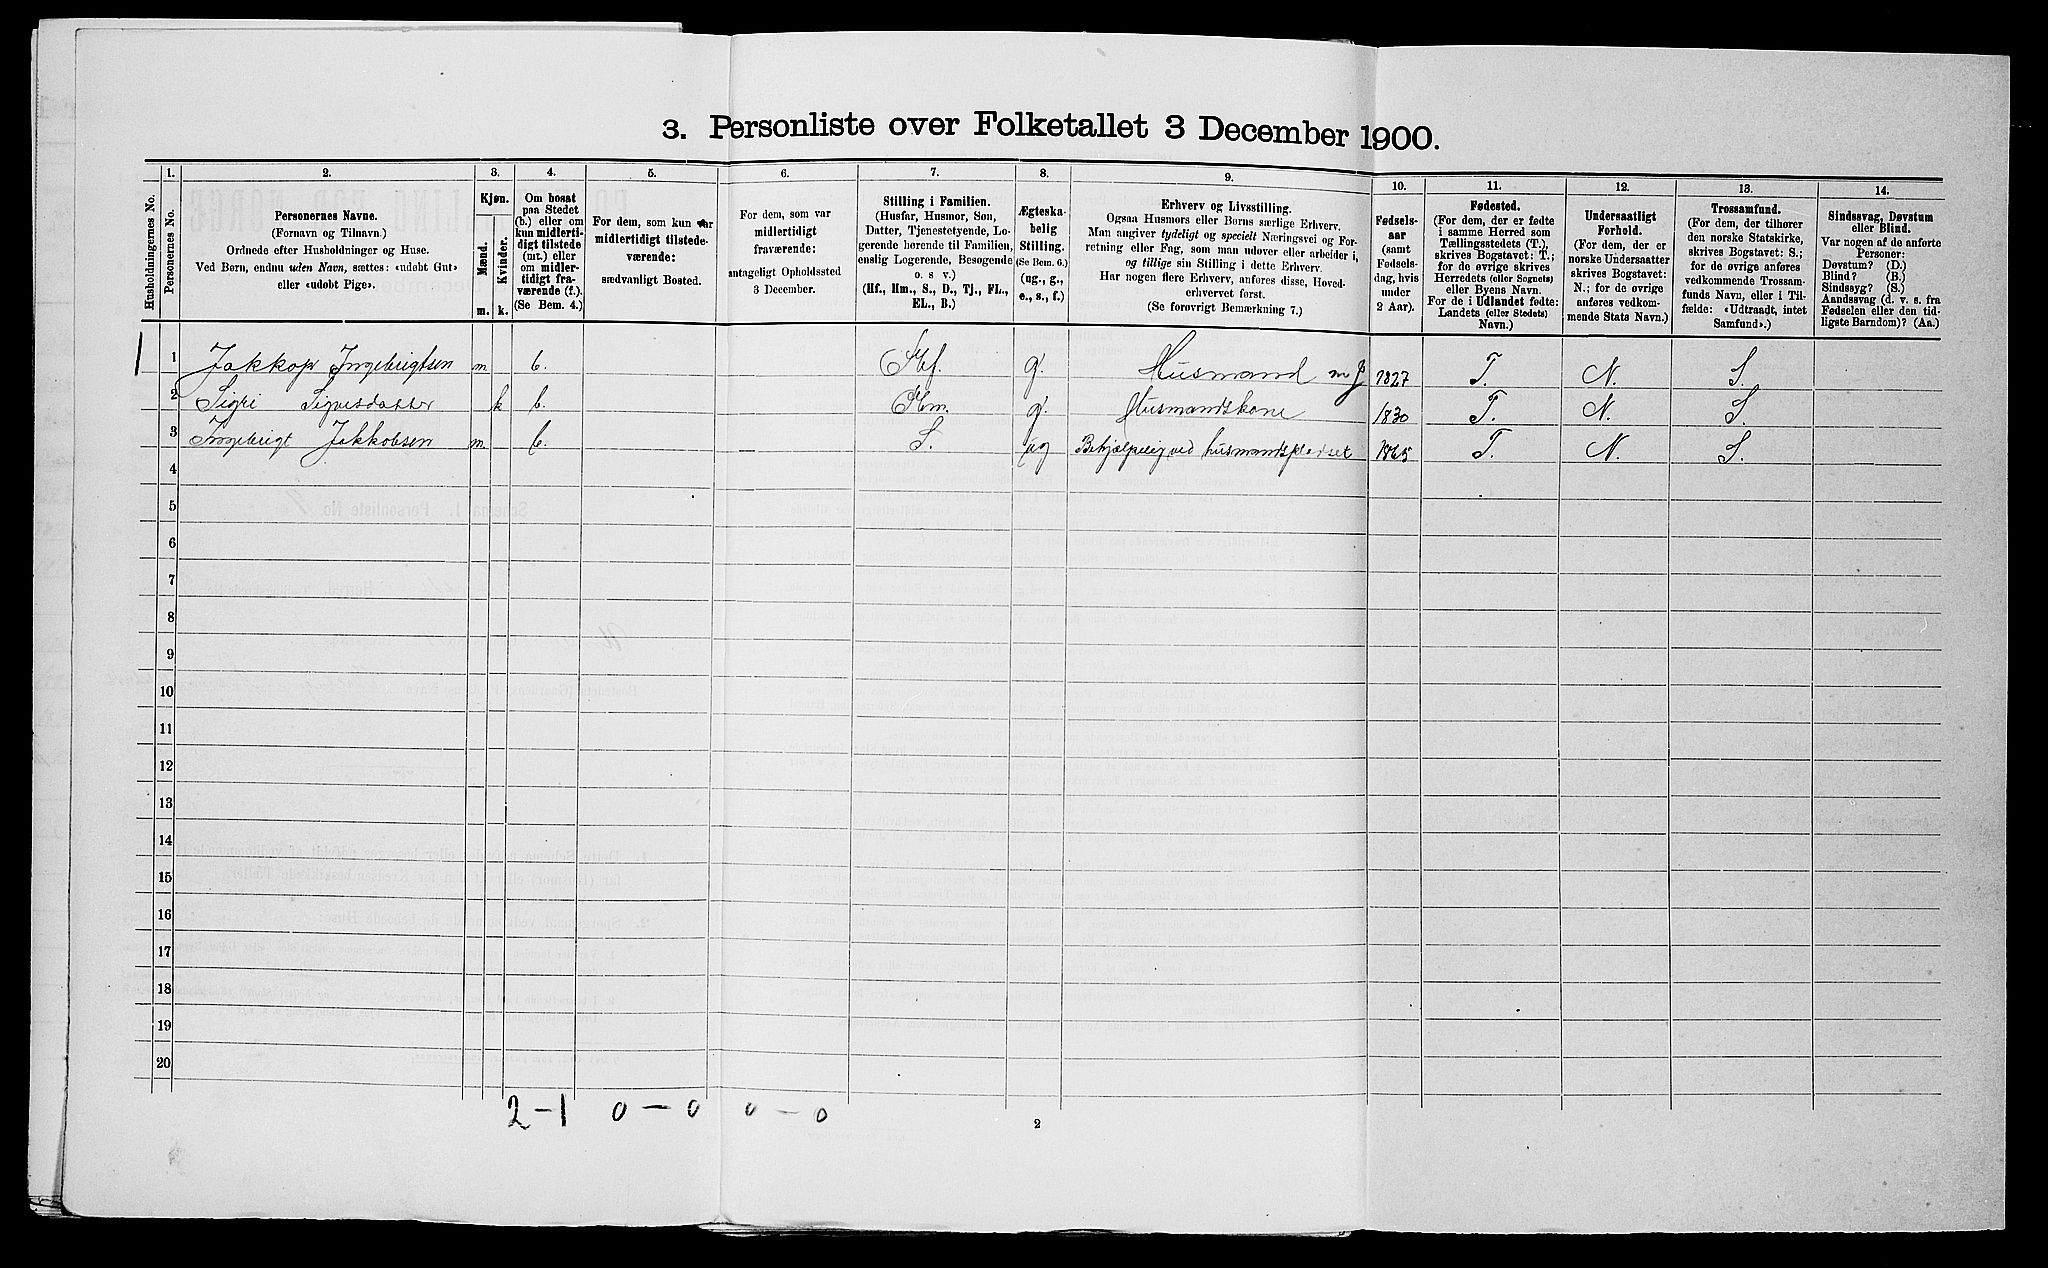 3. Personliste over Folketallet 3 December 1900.
1. 2. 3. 4. 5. 6. 7. 8. 9. 10. 11. 12. 13. 14.
Husholdningernes No.
Personernes No.
Personernes Navne.
(Fornavn og Tilnavn.)
Ordnede efter Husholdninger og Huse.
Ved Børn, endnu uden Navn, sættes: «udøbt Gut»
eller «udøbt Pige».
Kjøn.
Mænd.
Kvinder.
m. k.
Om bosat
paa Stedet
(b.) eller om
kun midlerti-
digt tilstede
(mt.) eller
om midler-
tidigt fra-
værende (f.).
(Se Bem. 4.)
For dem, som kun var
midlertidigt tilstede-
værende:
sædvanligt Bosted.
For dem, som var
midlertidigt
fraværende:
antageligt Opholdssted
3 December.
Stilling i Familien.
(Husfar, Husmor, Søn,
Datter, Tjenestetyende, Lo-
gerende hørende til Familien,
enslig Logerende, Besøgende
o. s v.)
(Hf., Hm., S., D., Tj., FL.,
EL., B.)
Ægteska-
belig
Stilling.
(Se Bem. 6.)
(ug., g.,
e., s., f.)
Erhverv og Livsstilling.
Ogsaa Husmors eller Børns særlige Erhverv.
Man angiver tydeligt og specielt Næringsvei og For-
retning eller Fag, som man udøver eller arbeider i,
og tillige sin Stilling i dette Erhverv.
Har nogen flere Erhverv, anføres disse, Hoved-
erhvervet først.
(Se forøvrigt Bemærkning 7.)
Fødsels-
aar
(samt
Fødsels-
dag, hvis
under
2 Aar).
Fødested.
(For dem, der er fødte
i samme Herred som
Tællingsstedets (T.),
skrives Bogstavet: T.;
for de øvrige skrives
Herredets (eller Sognets)
eller Byens Navn.
For de i Udlandet fødte:
Landets (eller Stedets)
Navn.)
Undersaatligt
Forhold.
(For dem, der er
norske Undersaatter
skrives Bogstavet:
N.; for de øvrige
anføres vedkom-
mende Stats Navn.)
Trossamfund.
(For dem, der tilhører
den norske Statskirke,
skrives Bogstavet: S.;
for de øvrige anføres
vedkommende Trossam-
funds Navn, eller i Til-
fælde: «Udtraadt, intet
Samfund».)
Sindssvag, Døvstum
eller Blind.
Var nogen af de anførte
Personer:
Døvstum? (D.)
Blind? (B.)
Sindssyg? (S.)
Aandssvag (d. v. s. fra
Fødselen eller den tid-
ligste Barndom)? (Aa.)
1 1 Jakkop Ingebrigtsen m b. Hf. g. Husmand m J 1827 T. N. S.
2 Sigri Sigvesdatter k b. Hm. g. Husmandskone 1830 T. N. S.
3 Ingebrigt Jakkobsen m b. S. ug Behjælpelig ved husmandspladset 1865 T. N. S.
4
5
6
7
8
9
10
11
12
13
14
15
16
17
18
19
20
2 – 1 0 – 0 0 – 0
2